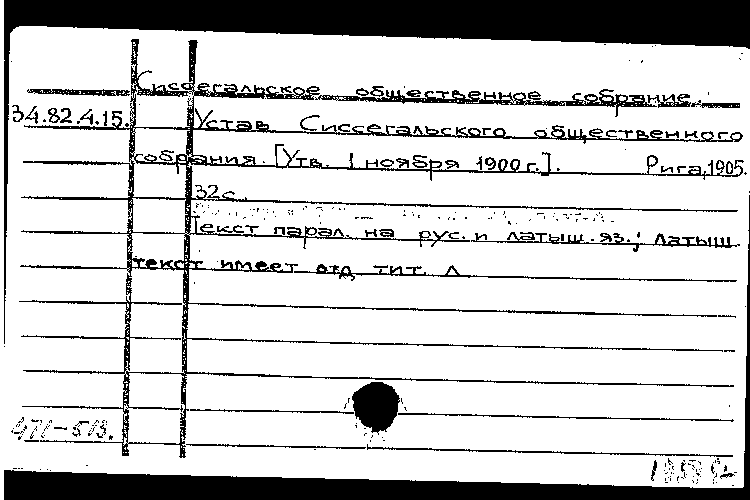 Сиссегальское общественное собрание.
34.82.4.15. Устав Сиссегальского общественного
собрания. [Утв. 1 ноября 1900 г.]. Рига, 1905.
32 с.
Текст парал. на рус. и латыш. яз.; латыш.
текст имеет отд. тит. л.
471-513.